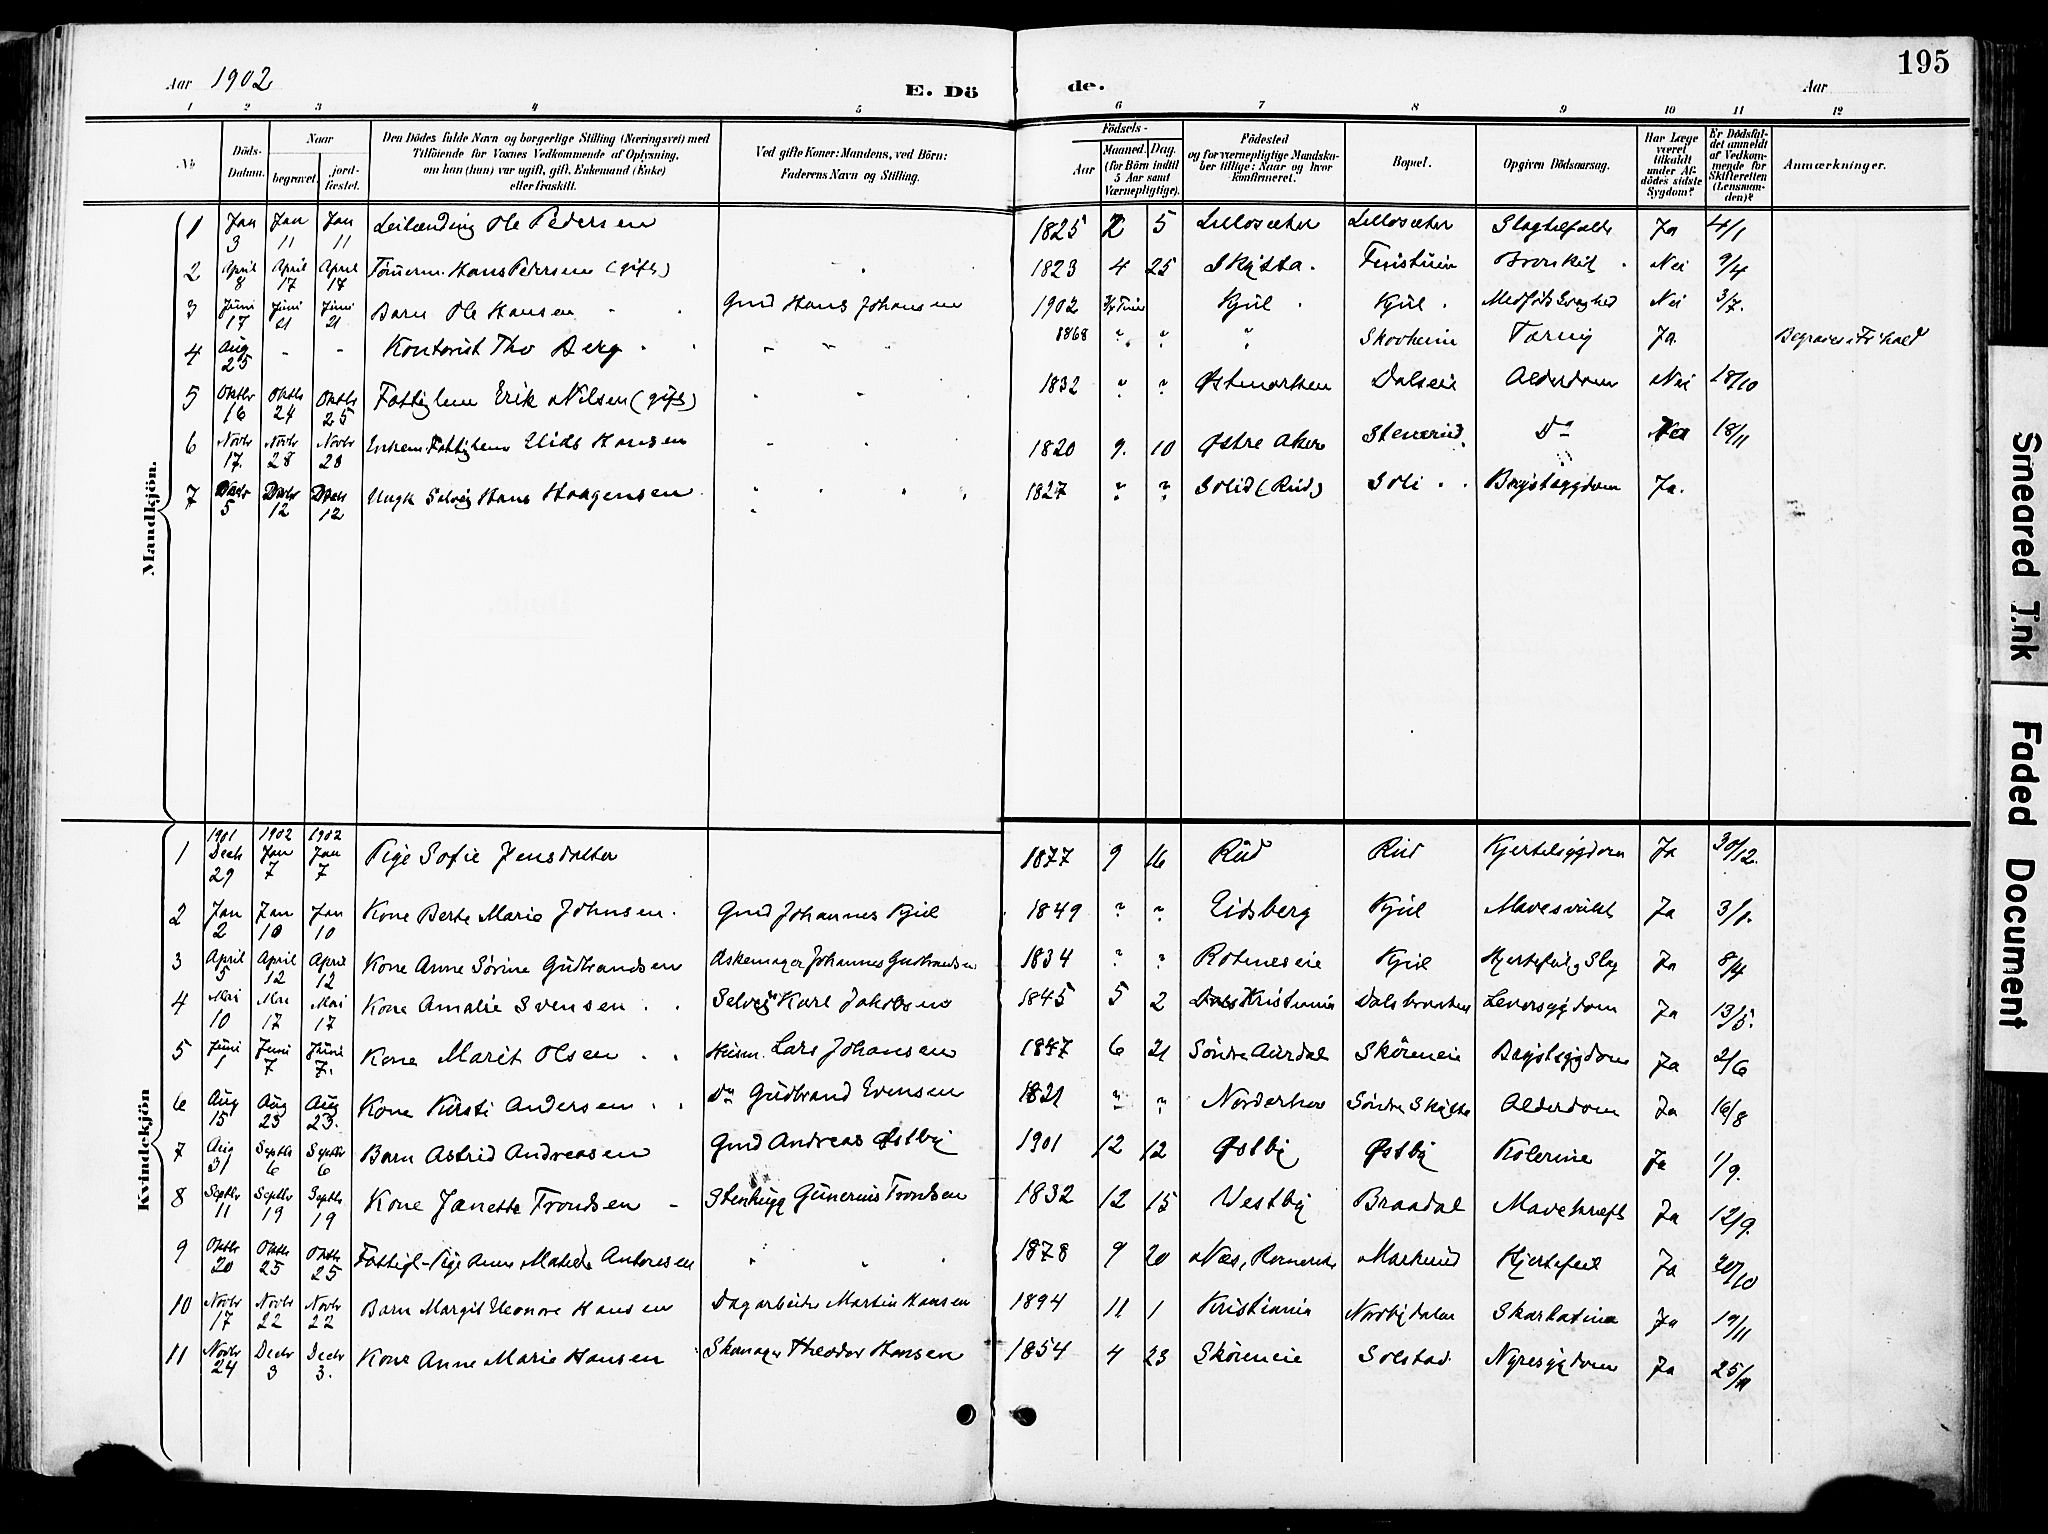 195
Aar 1902 E. Dö de. Aar
1 2 3 4 5 6 7 8 9 10 11 12
No
Döds-Datum.
Naar
begravet.
jord-fæstet.
Den Dödes fulde Navn og borgerlige Stilling (Næringsvei) med
Tilföiende for Voxnes Vedkommende af Oplysning,
om han (hun) var ugift, gift, Enkemand (Enke)
eller fraskilt.
Ved gifte Koner: Mandens, ved Börn:
Faderens Navn og Stilling.
Födsels-
Aar
Maaned. Dag.
(for Börn indtil
5 Aar samt
Værnepligtige).
Födested
og for værnepligtige Mandskaber tillige: Naar og hvor
konfirmeret.
Bopæl.
Opgiven Dödsaarsag.
Har Læge
været
tilkaldt
under Afdödes sidste
Sygdom?
Er Dödsfaldet anmeldt
af Vedkommende for
Skifteretten
(Lensmanden)?
Anmærkninger.
Mandkjön.
1 Jan 3 Jan 11 Jan 11 Leilænding Ole Pedersen 1825 2 5 Lillosæter Lillosæter Slagtilfælde Ja 4/1
2 April 8 April 17 April 17 Tømmerm. Hans Pedersen (gift) 1823 4 25 Skytta Bronkit Nei 9/4
3 Juni 17 Juni 21 Juni 21 Barn Ole Hansen Gmd Hans Johansen 1902 Kjul Kjul Medfødt Svaghed Nei 3/7.
4 Aug 25 - - Kontorist Tho Berg 1868 " " " Skovheim Ja
5 Oktbr 16 Oktbr 24 Oktbr 25 Fattiglem Erik Nilsen (gift) 1832 " " Østmarken Dalseie Alderdom Nei 18/10
6 Novbr 17. Novbr 28 Novbr 28 Enkem. Fattiglem Hansen 1820 9. 10 Østre Aker Stenerud Do Nei 18/11
7 Decbr 5 Decbr 12 Decbr 12 Ungk Selvej Hans Haagensen 1827 " " Solid (Rud) Soli Brystsygdom Ja.
Kvindekjön
1 1901 Decb 29 1902 Jan 7 1902 Jan 7 Pige Sofie Jensdatter 1877 9 16 Rud Rud Kjertelsygdom Ja 30/12.
2 Jan 2 Jan 10 Jan 10 Kone Berte Marie Johnsen. Gmd Johannes Kjul 1849 " " Eidsberg Kjul Mavesvulst Ja 3/1.
3 April 5 April 12 April 12 Kone Anne Sørine Gudbrandsen Askemager Johannes Gudbrandsen 1834 " " Rotneseie Kjul Hjertefeil, Slag Ja 8/4
4 Mai 10 Mai 17 Mai 17 Kone Amalie Svensen Selvej Karl Jakobsen 1845 5 2 Kristiania Dalsbraaten Leversygdom Ja 13/5.
5 Juni 1 Juni 7 Juni 7. Kone Marit Olsen Husm. Lars Johansen 1847 6 21 Søndre Aurdal Skøreneie Brystsygdom Ja 2/6
6 Aug 15 Aug 23 Aug 23. Kone Kirsti Andersen Do Gudbrand Evensen 1821 " " Norderhov Søndre Skytta Alderdom Ja 16/8
7 Aug 31 Septbr 6 Septbr 6 Barn Astrid Andreasen Gmd Andreas Østby 1901 12 12 Østby Østby Kolerine Ja 1/9.
8 Septbr 11 Septbr 19 Septbr 19 Kone Janette Trondsen Stenhugg Gunerius Trondsen 1832 12 15 Vestby Braadal Mavekræft Ja 12/9.
9 Oktbr 20 Oktbr 25 Oktbr 25 Fattigl-Pige Anna Matilde Antonsen 1878 9 20 Næs, Romerike Markerud Hjertefeil Ja 20/10
10 Novbr 17 Novbr 22 Novbr 22 Barn Margit Eleonore Hansen Dagarbeider Martin Hansen 1894 11 1 Kristiania Nordbydalen Skarlatina Ja 19/11
11 Novbr 24 Decbr 3 Decbr 3. Kone Anne Marie Hansen Skomager Theodor Hansen 1854 4 23 Skøreneie Solstad Nyresygdom Ja 25/11
Smeared Ink
Faded Document